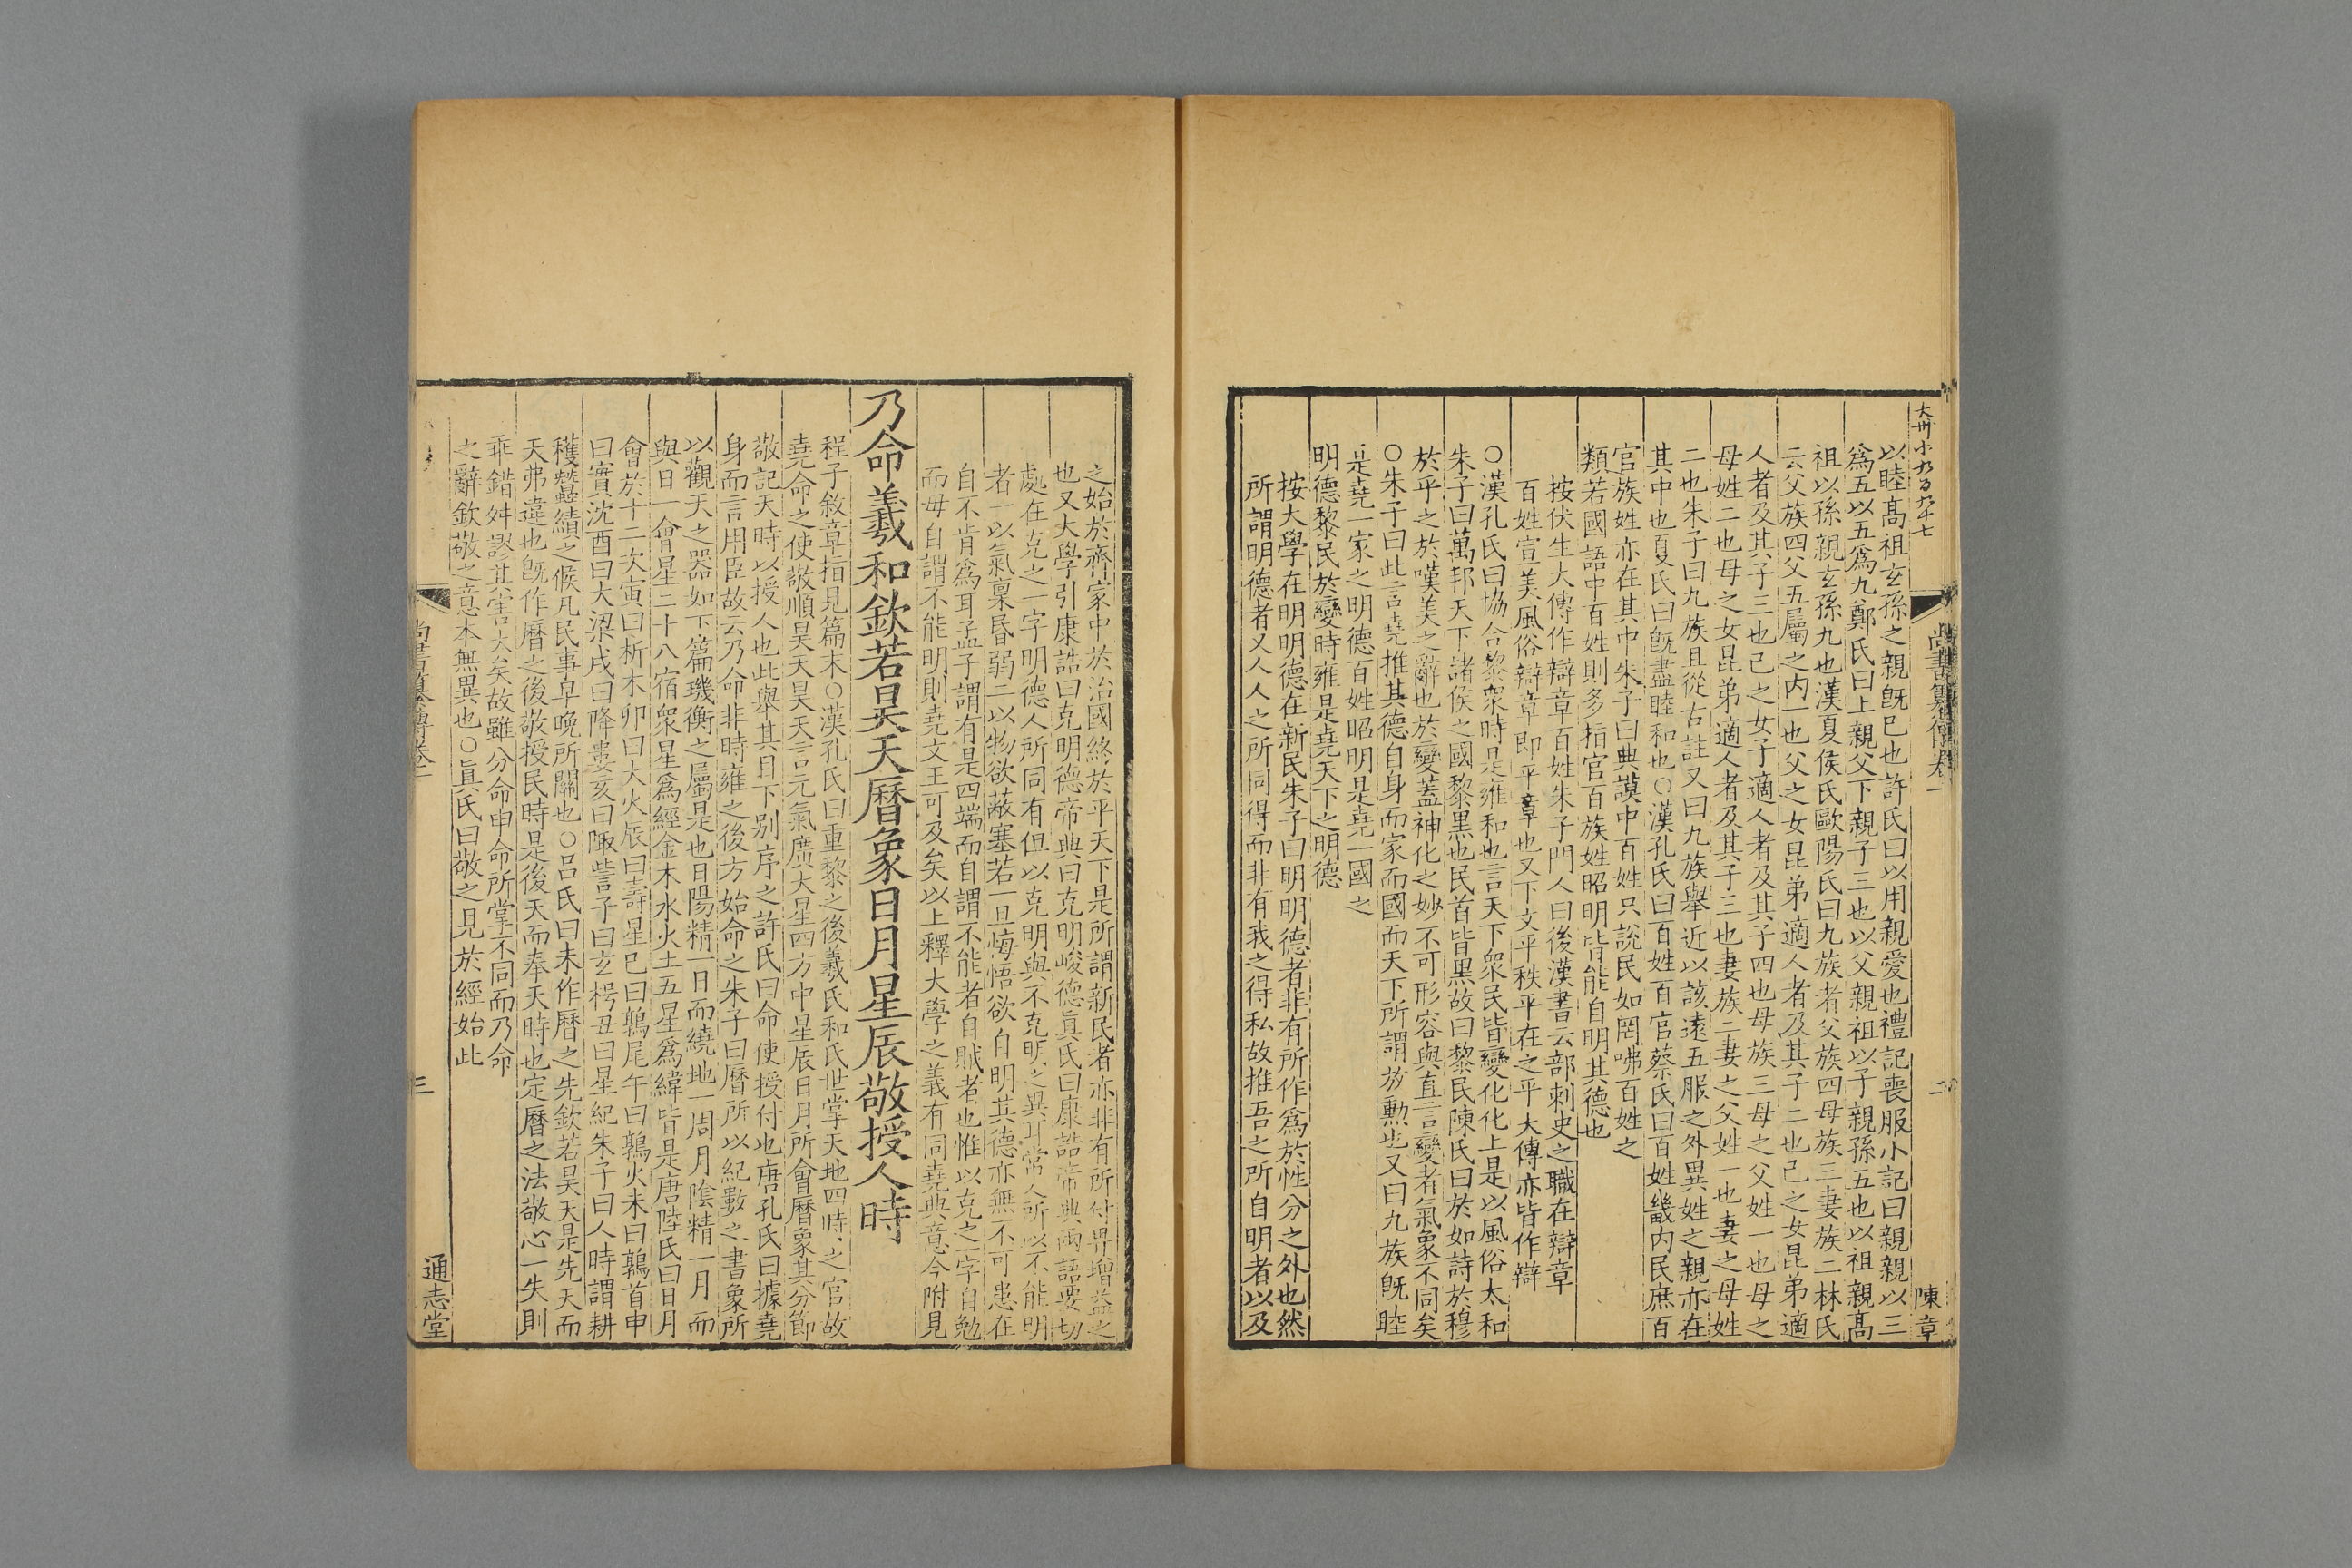 尚書纂傳卷一
二
陳章
以睦高祖玄孫之親旣已也許氏曰以用親愛也禮記喪服小記曰親親以三
爲五以五爲九鄭氏曰上親父下親子三也以父親祖以子親孫五也以祖親高
祖以孫親玄孫九也漢夏侯氏歐陽氏曰九族者父族四母族三妻族二林氏
云父族四父五屬之内一也父之女昆弟適人者及其子二也己之女昆弟適
人者及其子三也己之女子適人者及其子四也母族三母之父姓一也母之
母姓二也母之女昆弟適人者及其子三也妻族二妻之父姓一也妻之母姓
二也朱子曰九族且從古註又曰九族舉近以該遠五服之外異姓之親亦在
其中也夏氏曰旣盡睦和也○漢孔氏曰百姓百官蔡氏曰百姓畿内民庶百
官族姓亦在其中朱子曰典謨中百姓只說民如罔咈百姓之
類若國語中百姓則多指官百族姓昭明皆能自明其德也
按伏生大傳作辯章百姓朱子門人曰後漢書云部刺史之職在辯章
百姓宣美風俗辯章即平章也又下文平秩平在之平大傳亦皆作辯
○漢孔氏曰協合黎衆時是雍和也言天下衆民皆變化化上是以風俗太和
朱子曰萬邦天下諸侯之國黎黑也民首皆黑故曰黎民陳氏曰於如詩於穆
於乎之於嘆美之辭也於變蓋神化之妙不可形容與直言變者氣象不同矣
○朱子曰此言堯推其德自身而家而國而天下所謂放勲也又曰九族旣睦
是堯一家之明德百姓昭明是堯一國之
明德黎民於變時雍是堯天下之明德
按大學在明明德在新民朱子曰明明德者非有所作爲於性分之外也然
所謂明德者又人人之所同得而非有我之得私故推吾之所自明者以及
之始於齊家中於治國終於平天下是所謂新民者亦非有所付畀增益之
也又大學引康誥曰克明德帝典曰克明峻德眞氏曰康誥帝典兩語要切
處在克之一字明德人所同有但以克明與不克明之異耳常人所以不能明
者一以氣稟昏弱二以物欲蔽塞若一旦悔悟欲自明其德亦無不可患在
自不肯爲耳孟子謂有是四端而自謂不能者自賊者也惟以克之一字自勉
而毋自謂不能明則堯文王可及矣以上釋大學之義有同堯典意今附見
乃命羲和欽若昊天曆象日月星辰敬授人時
程子敘章指見篇末○漢孔氏曰重黎之後羲氏和氏世掌天地四時之官故
堯命之使敬順昊天昊天言元氣廣大星四方中星辰日月所會曆象其分節
敬記天時以授人也此舉其目下别序之許氏曰命使授付也唐孔氏曰據堯
身而言用臣故云乃命非時雍之後方始命之朱子曰曆所以紀數之書象所
以觀天之器如下篇璣衡之屬是也日陽精一日而繞地一周月陰精一月而
與日一會星二十八宿衆星爲經金木水火土五星爲緯皆是唐陸氏曰日月
會於十二次寅曰析木卯曰大火辰曰壽星巳曰鶉尾午曰鶉火未曰鶉首申
曰實沈酉曰大梁戌曰降婁亥曰陬訾子曰玄枵丑曰星紀朱子曰人時謂耕
穫蠶績之候凡民事早晚所關也○呂氏曰未作曆之先欽若昊天是先天而
天弗違也旣作曆之後敬授民時是後天而奉天時也定曆之法敬心一失則
乖錯舛謬其害大矣故雖分命申命所掌不同而乃命
之辭欽敬之意本無異也○眞氏曰敬之見於經始此
尚書纂傳卷一
三
通志堂